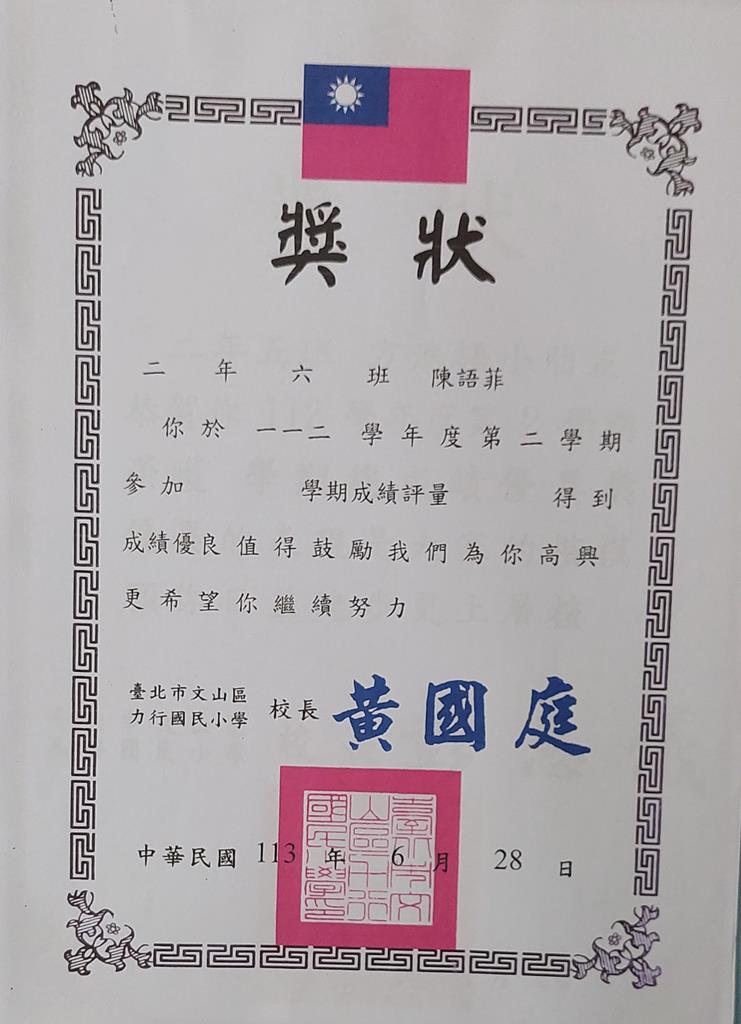 獎狀
二年六班 陳語菲
你於一一二學年度第二學期
參加 學期成績評量 得到
成績優良值得鼓勵我們為你高興
更希望你繼續努力
臺北市文山區
力行國民小學 校長 黃國庭
中華民國 113 年 6 月 28 日